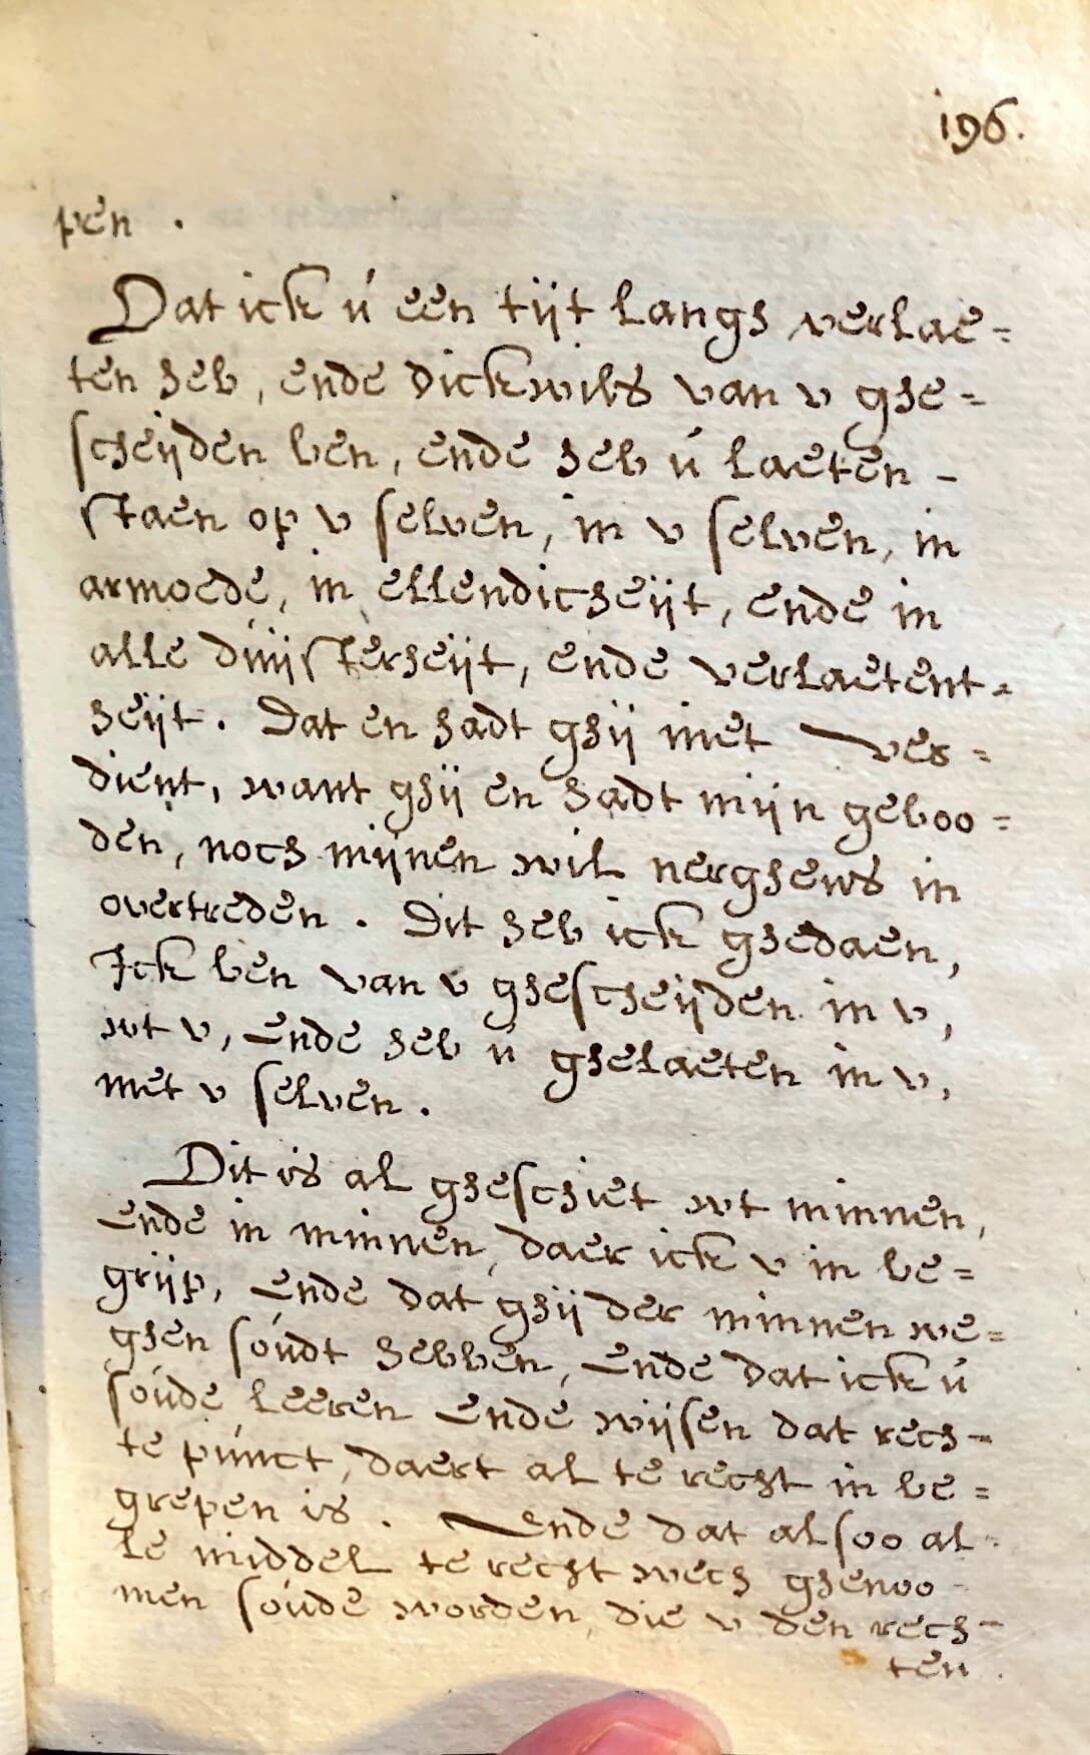 196.
pen .
Dat ick ú een tijt langh verlae=
ten heb, ende dickwils van v ghe=
scheijden ben, ende heb ú laeten -
staen op v selven, in v selven, in
armoede, in ellendicheijt, ende in
alle duijsterheijt, ende verlaetent=
heijt. Dat en hadt ghij niet ver=
dient, want ghij en hadt mijn geboo=
den, noch mijnen wil nerghens in
overtreden. Dit heb ick ghedaen,
Ick ben van v ghescheijden in v,
wt v, ende heb ú ghelaeten in v,
met v selven.
Dit is al gheschiet wt minnen,
Ende in minnen, daer ick v in be=
grijp, Ende dat ghij der minnen we=
ghen soúdt hebben, Ende dat ick ú
soúde leeren Ende wijsen dat rech=
te púnct, daert al te recht in be=
grepen is. Ende dat alsoo al=
le middel te recht wech ghenoo-
men soúde worden, die v den rech=
ten.